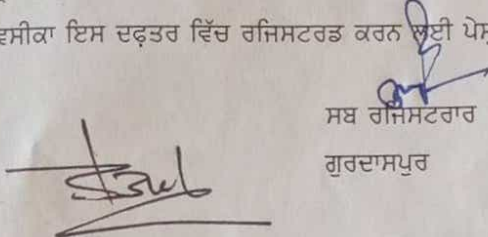 ਵਸੀਕਾ ਇਸ ਦਫ਼ਤਰ ਵਿੱਚ ਰਜਿਸਟਰਡ ਕਰਨ ਲਈ ਪੇਸ਼
ਸਬ ਰਜਿਸਟਰਾਰ
ਗੁਰਦਾਸਪੁਰ